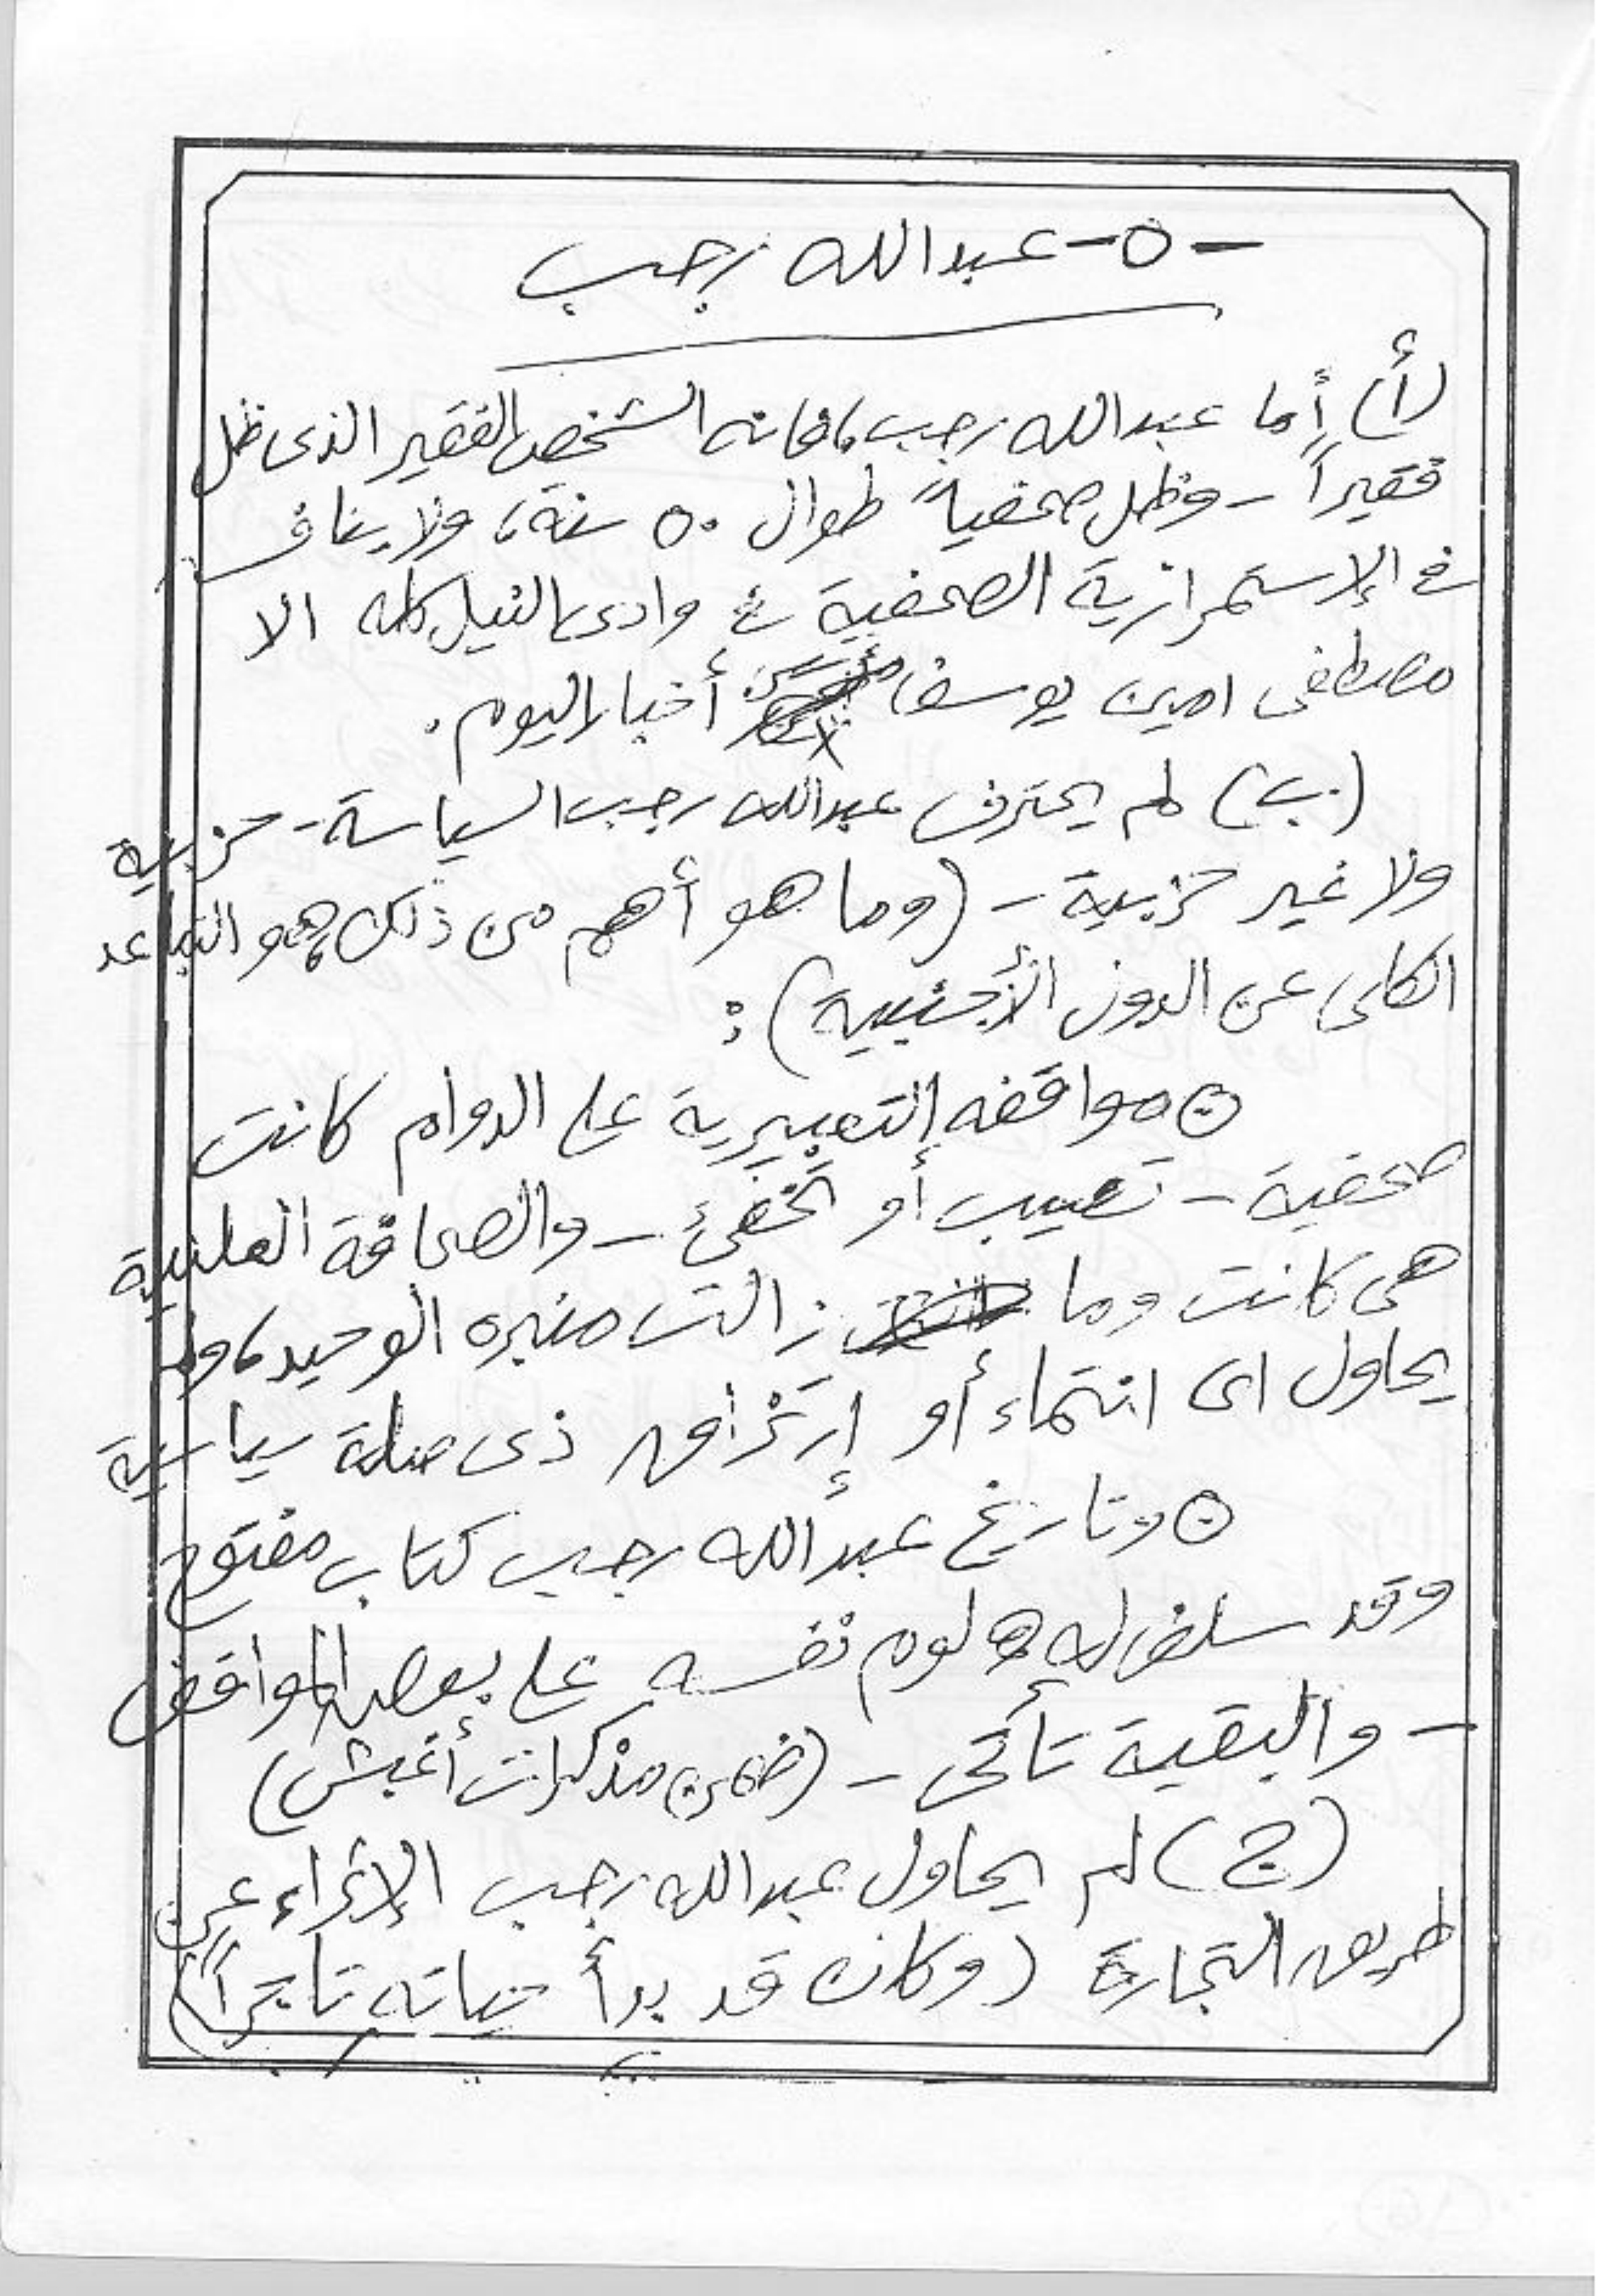 -٥- عبدالله رجب
(أ) أما عبدالله رجب، فانه الشخص الفقير الذى ظل
فقيراً - وظل صحفياً طوال ٥٠ سنة، ولا ينافسه
في الإستمرارية الصحفية في وادى النيل كله الا
مصطفى امين يوسف مؤسس أخبار اليوم.
(ب) لم يحترف عبدالله رجب السياسة - حزبية
ولا غير حزبية - (وما هو أهم من ذلك، هو التباعد
الكلى عن الدول الأجنبية):
مواقفه التعبيرية على الدوام كانت
صحفية - تصيب أو تخطئ - والصحافة العلنية
هى كانت وما زالت منبره الوحيد، ولم
يحاول اى انتماء أو إرتزاق ذى صلة سياسية
وتاريخ عبدالله رجب كتاب مفتوح
وقد سلف له لوم نفسه على بعض المواقف
- والبقية تأتى - (ضمن مذكرات أغبش)
(ج) لم يحاول عبدالله رجب الإثراء عن
طريق التجارة (وكان قد بدأ حياته تاجراً)